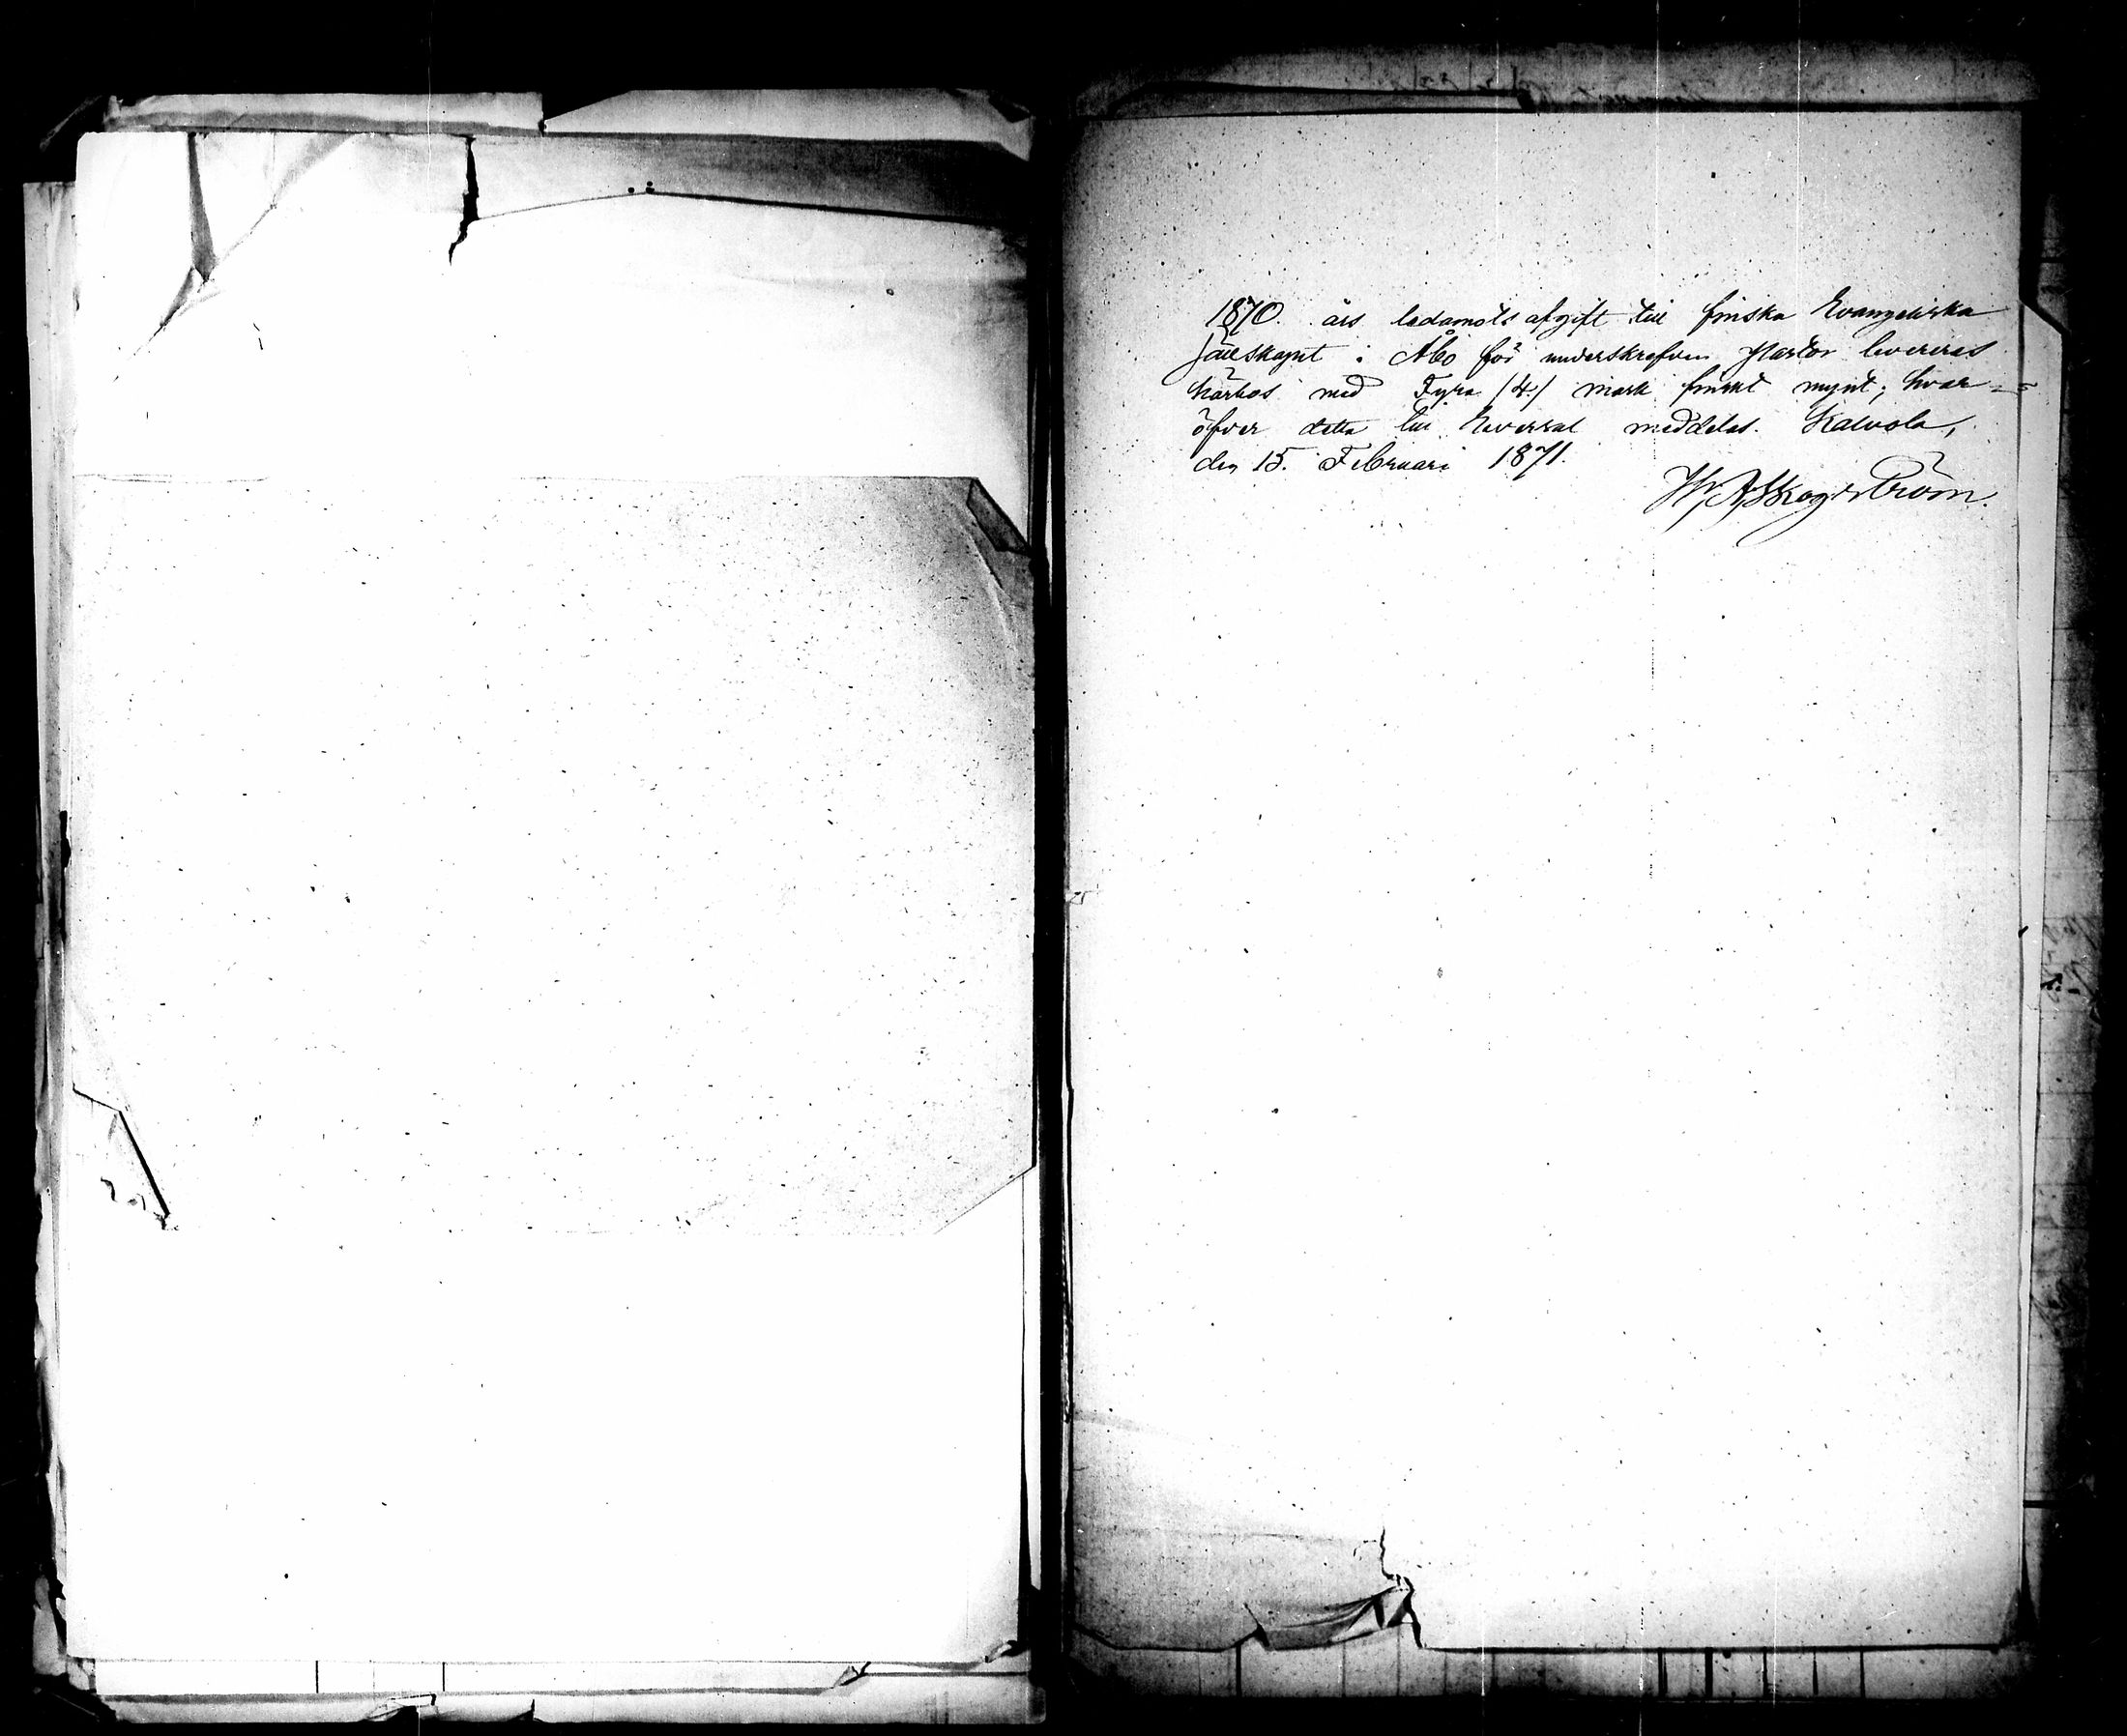 1870. års ledamots afgift till finska Evangeliska
Sällskapet i Åbo för underskrefven Pastor levereras
härhos med Fyra /4./ mark finskt mynt; hvar=
öfver detta till Reversal meddelas. Kalvola,
den 15. Februari 1871.
Skogström.